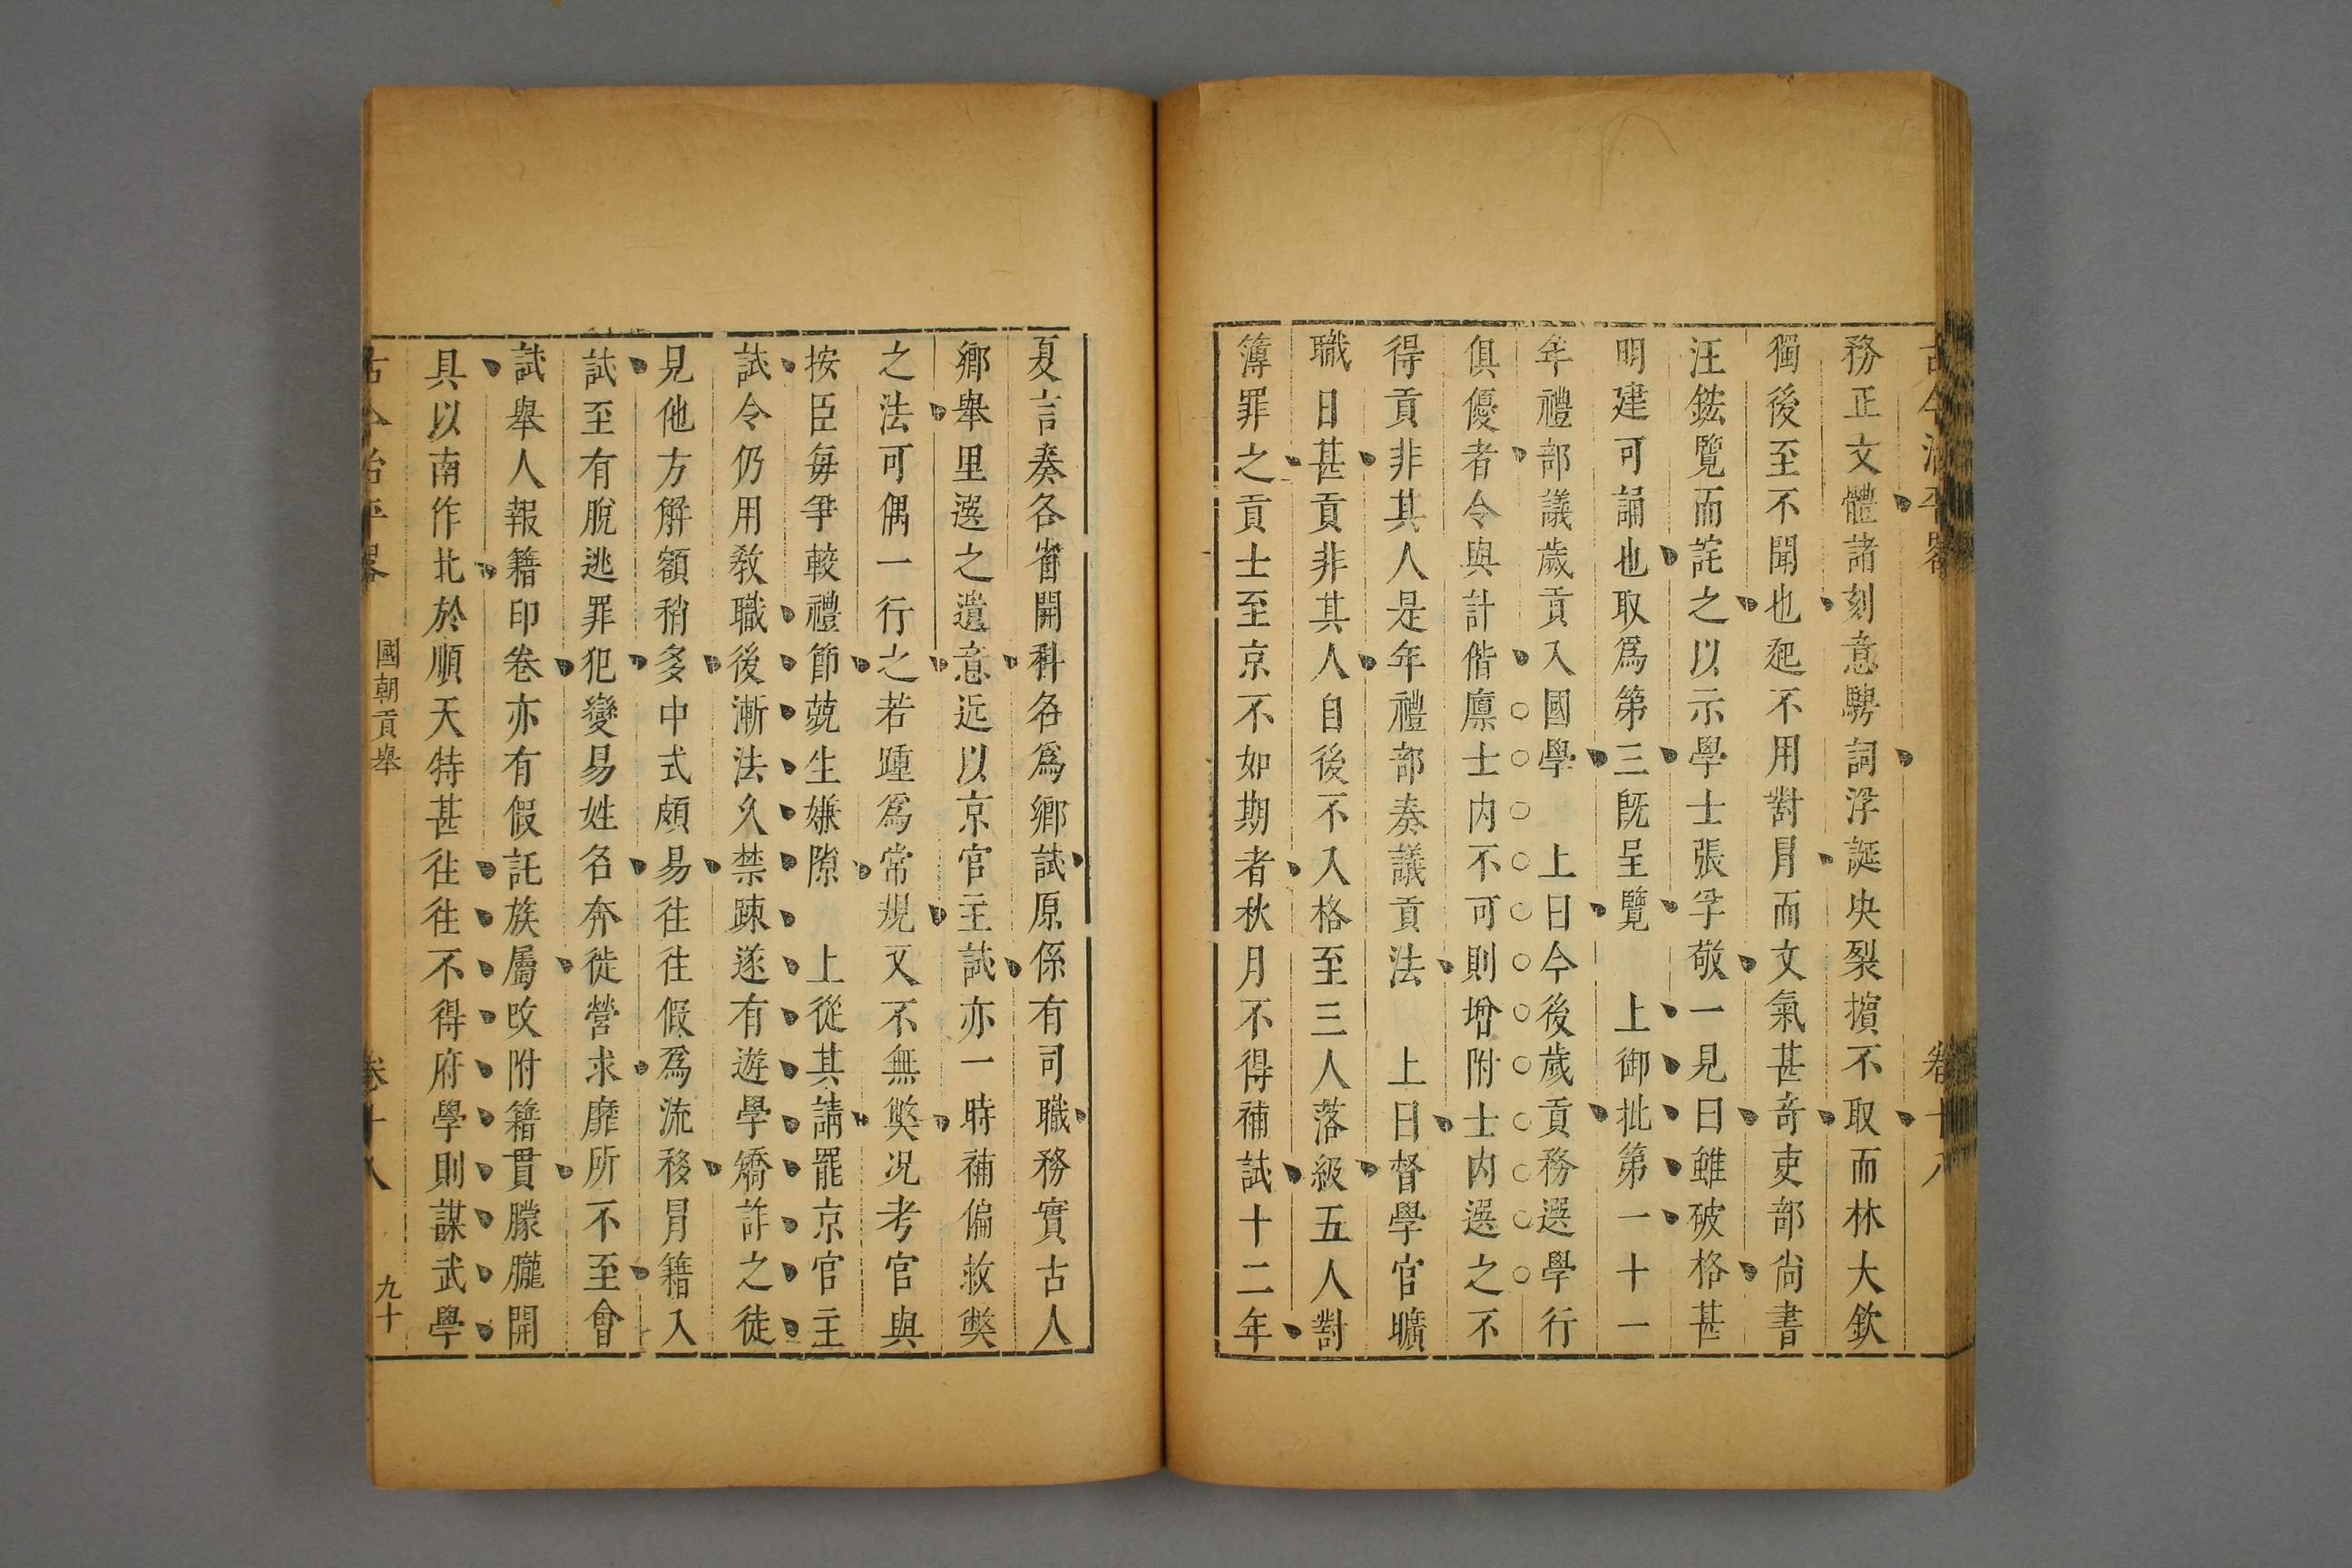 古今治平畧 卷十八
務正文體諸刻意騁詞浮誕決裂擯不取而林大欽
獨後至不聞也起不用對冐而文氣甚竒吏部尚書
汪鋐覽而詫之以示學士張孚敬一見曰雖破格甚
明建可誦也取爲第三旣呈覽 上御批第一十一
年禮部議歲貢入國學 上曰今後歲貢務選學行
俱優者令與計偕廪士内不可則增附士内選之不
得貢非其人是年禮部奏議貢法 上曰督學官曠
職日甚貢非其人自後不入格至三人落級五人對
簿罪之貢士至京不如期者秋月不得補試十二年
夏言奏各省開科名爲鄉試原係有司職務實古人
鄉舉里選之遺意近以京官主試亦一時補偏救獘
之法可偶一行之若踵爲常規又不無獘况考官與
按臣毎爭較禮節兢生嫌隙 上從其請罷京官主
試令仍用敎職後漸法久禁踈遂有遊學矯詐之徒
見他方解額稍多中式頗易徃徃假爲流移冐籍入
試至有脫逃罪犯變易姓名奔徙營求靡所不至會
試舉人報籍印卷亦有假託族屬改附籍貫朦朧開
具以南作北於順天特甚徃徃不得府學則謀武學
古今治平畧 國朝貢舉 卷十八 九十